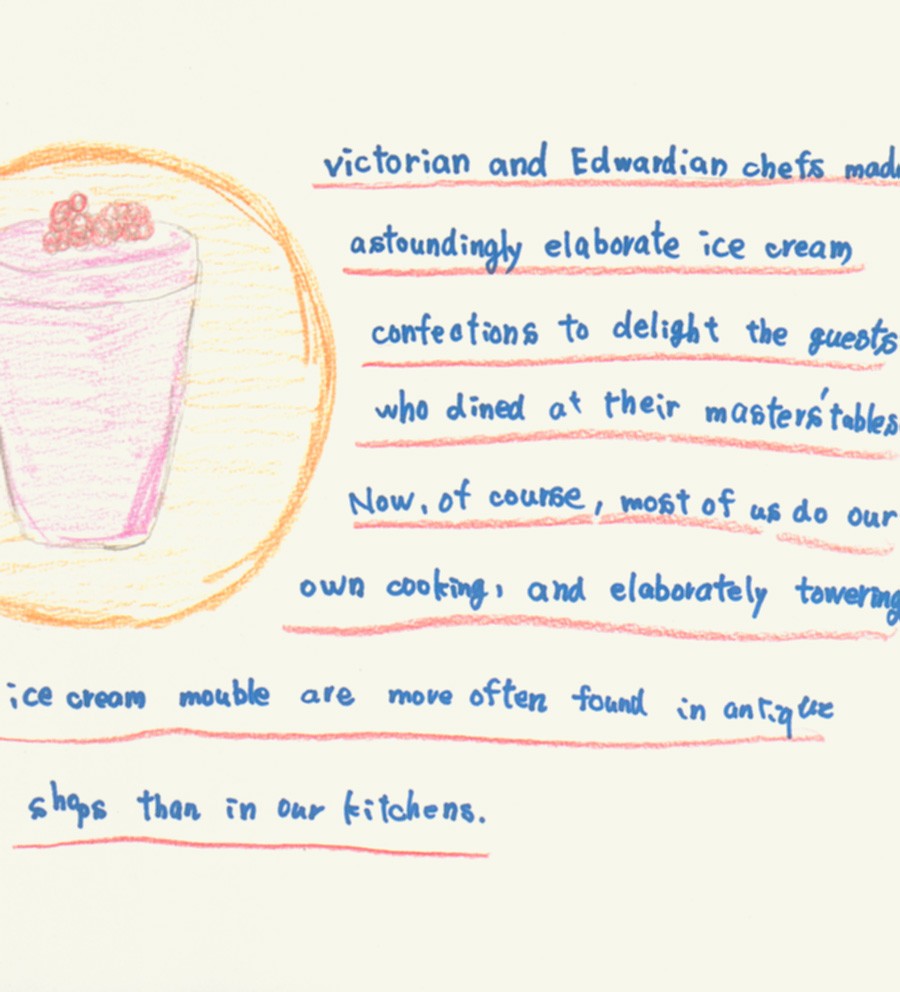 victorian and Edwardian chefs made
astoundingly elaborate ice cream
confections to delight the guests
who dined at their masters' tables
Now, of course, most of us do our
own cooking, and elaborately towering
ice cream mouble are move often found in antique
shops than in our kitchens.